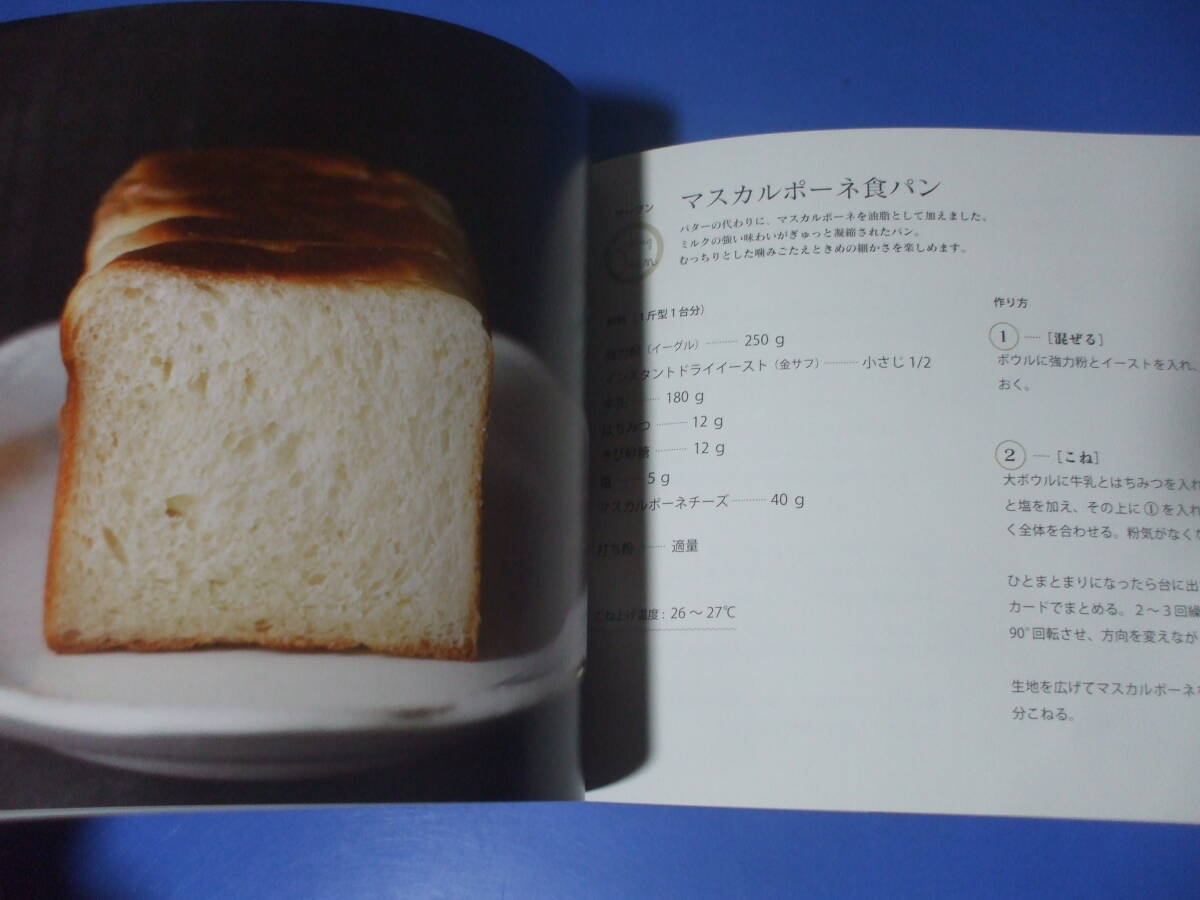 マスカルポーネ食パン
バターの代わりに、マスカルポーネを油脂として加えました。
ミルクの強い味わいがぎゅっと凝縮されたパン。
むっちりとした噛みごたえときめの細かさを楽しめます。
オーブン
材料（1斤型1台分）
強力粉（イーグル）………… 250 g
インスタントドライイースト（金サフ）………… 小さじ 1/2
牛乳 ………… 180 g
はちみつ ………… 12 g
きび砂糖 ………… 12 g
塩 ………… 5 g
マスカルポーネチーズ ………… 40 g
打ち粉 ………… 適量
こね上げ温度：26 〜 27℃
作り方
1 ―― [混ぜる]
ボウルに強力粉とイーストを入れ、
おく。
2 ―― [こね]
大ボウルに牛乳とはちみつを入れ
と塩を加え、その上に①を入れ
く全体を合わせる。粉気がなくな
ひとまとまりになったら台に出
カードでまとめる。2〜3回繰
90°回転させ、方向を変えなが
生地を広げてマスカルポーネを
分こねる。